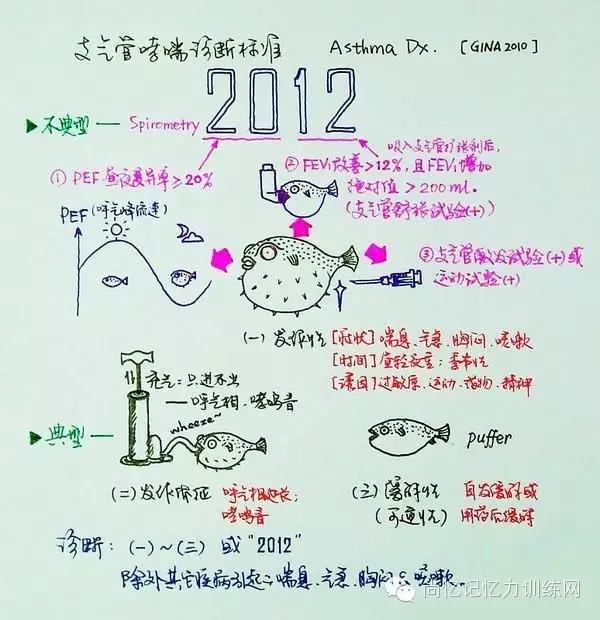 支气管哮喘诊断标准 Asthma Dx. [GINA 2010]
▶不典型 — Spirometry 2012
吸入支气管扩张剂后,
① PEF 昼夜变异率≥20%
② FEV₁改善>12%, 且FEV₁增加
绝对值>200ml.
(支气管舒张试验(+))
PEF(呼气峰流速)
③支气管激发试验(+)或
运动试验(+)
(一)发作性 [症状]喘息、气急、胸闷、咳嗽
[时间]昼轻夜重;季节性
[诱因]过敏原、运动、药物、精神
充气:只进不出
— 呼气相、哮鸣音
wheeze~
▶典型 —
puffer
(二)发作体征 呼气相延长;
哮鸣音
(三)缓解性 自发缓解或
(可逆性) 用药后缓解
诊断: (一)~(三) 或 "2012"
除外其它疾病引起之喘息、气急、胸闷&咳嗽。
尚忆记忆力训练网